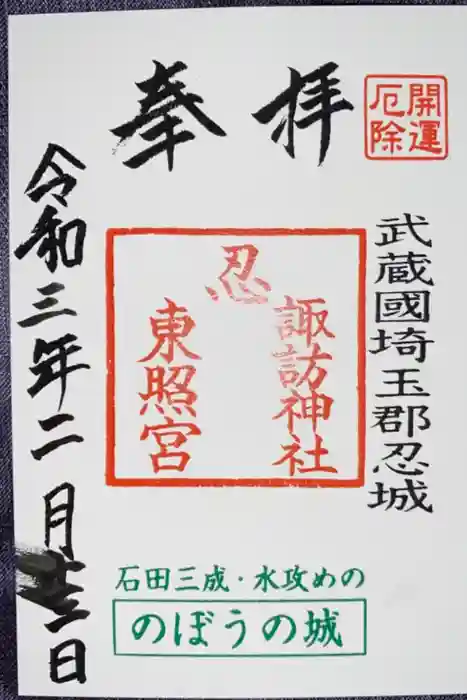 開運
厄除
奉拝
武蔵國埼玉郡忍城
忍
諏訪神社
東照宮
令和三年二月 日
石田三成・水攻めの
のぼうの城